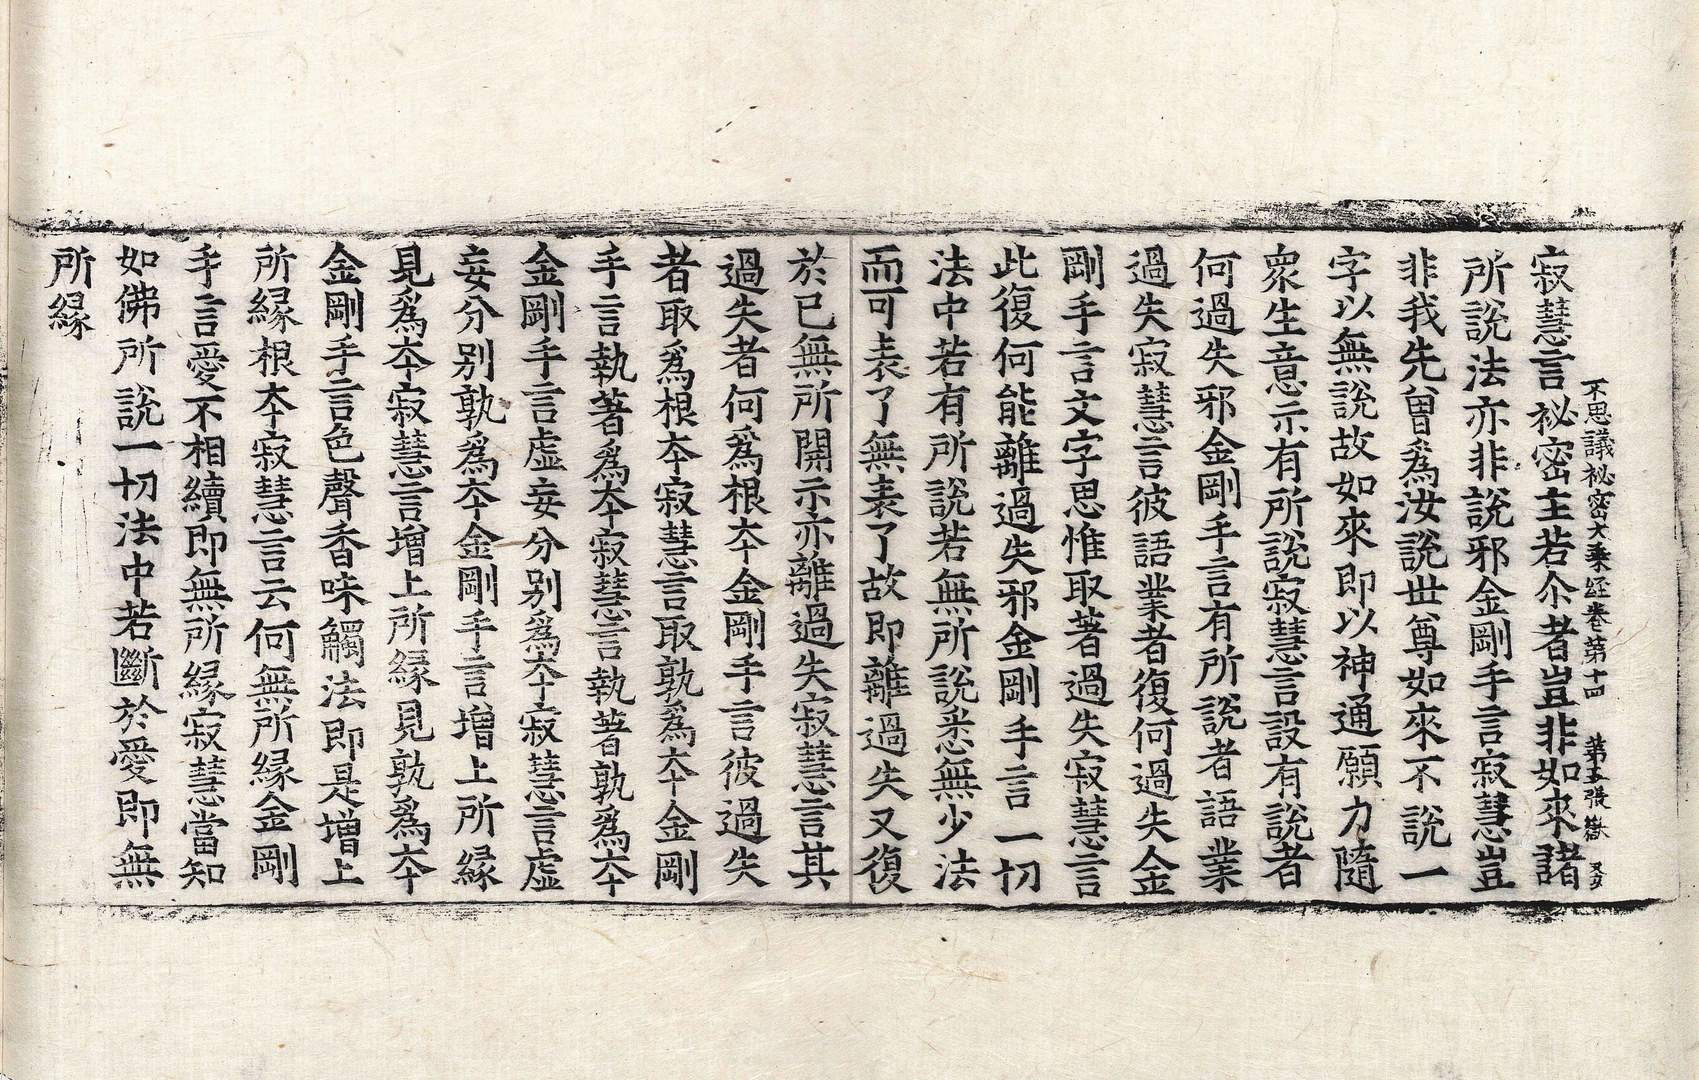 不思議祕密大乘経卷第十四　第五張　嶽
寂慧言祕密主若尒者豈非如來諸
所說法亦非說邪金剛手言寂慧豈
非我先曾爲汝說世尊如來不說一
字以無說故如來即以神通願力隨
衆生意示有所說寂慧言設有說者
何過失邪金剛手言有所說者語業
過失寂慧言彼語業者復何過失金
剛手言文字思惟取著過失寂慧言
此復何能離過失邪金剛手言一切
法中若有所說若無所說悉無少法
而可表了無表了故即離過失又復
於已無所開示亦離過失寂慧言其
過失者何爲根夲金剛手言彼過失
者取爲根夲寂慧言取孰爲夲金剛
手言執著爲夲寂慧言執著孰爲夲
金剛手言虛妄分别爲夲寂慧言虛
妄分别孰爲夲金剛手言增上所緣
見爲夲寂慧言增上所緣見孰爲夲
金剛手言色聲香味觸法即是增上
所緣根夲寂慧言云何無所緣金剛
手言愛不相續即無所緣寂慧當知
如佛所說一切法中若斷於愛即無
所緣